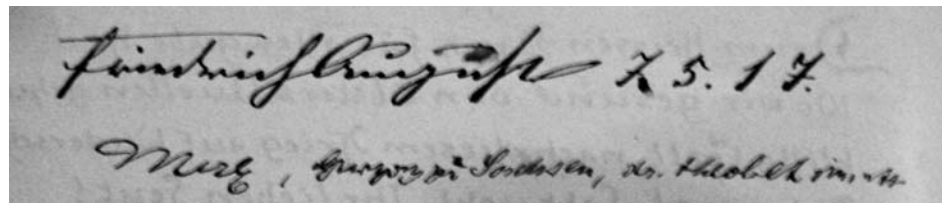 Friedrich August 7. 5. 17.
Max, Herzog zu Sachsen, dr. theol et